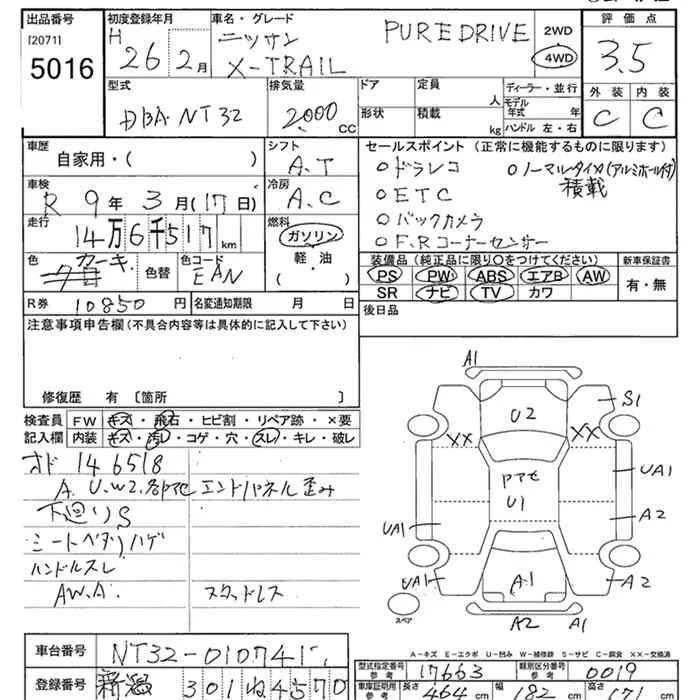 出品番号 初度登録年月 車名・グレード 評価点
[2071]
5016
H 26 2月
ニッサン PUREDRIVE
X-TRAIL
2WD
4WD
3.5
外装 内装
C C
型式 排気量 ドア 定員 人 ディーラー・並行
DBA NT32 2000 CC 形状 積載 kg モデル年式 年
ハンドル 左・右
車歴 シフト セールスポイント (正常に機能するものに限ります)
自家用・( ) A.T
○ドラレコ ○ノーマルタイヤ(アルミホイール付)
積載
車検 冷房
R 9年 3月(17日) A.C
○ETC
走行 燃料
14万6千517km ガソリン
○バックカメラ
軽・油
( )
○F,Rコーナーセンサー
色 色替 色コード
カーキ EAN
装備品 (純正品に限り○をつけてください) 新車保証書
PS PW ABS エアB AW 有・無
SR ナビ TV カワ
R券 10850円 名変通知期限 月 日
後日品
注意事項申告欄(不具合内容等は具体的に記入して下さい)
修復歴 有 〔箇所 〕
検査員 FW キズ・飛石・ヒビ割・リペア跡・×要
記入欄 内装 キズ・汚レ・コゲ・穴・スレ・キレ・破レ
オド 146518
A.U.W2.各Pアセ エンドパネル歪み
下廻りS
シートヘタリハゲ
ハンドルスレ
AW.A. スタッドレス
A1
U2
S1
XX XX
Pアセ
U1
UA1
A2
UA1
UA1
A1
A2
A2 A1
スペア
A-キズ E-エクボ U-凹み W-補修跡 S-サビ C-腐食 ××-交換済
車台番号 NT32-010741
型式指定番号 参考 17663 類別区分番号 参考 0019
登録番号 新潟 301 ね 4570
車庫証明用 参考 長さ 464cm 幅 182cm 高さ 171cm